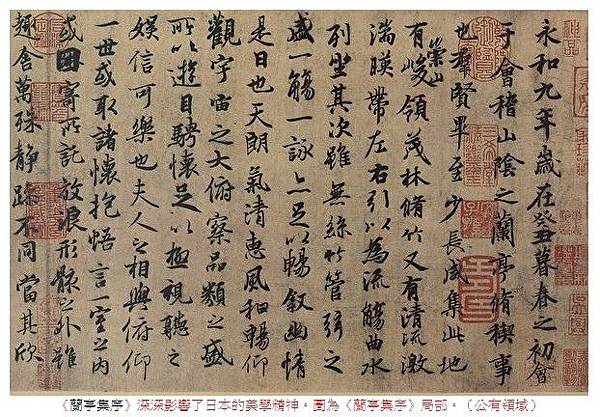 永和九年歲在癸丑暮春之初會
于會稽山陰之蘭亭脩稧事
也羣賢畢至少長咸集此地
有崇山峻領茂林脩竹又有清流激
湍暎帶左右引以為流觴曲水
列坐其次雖無絲竹管弦之
盛一觴一詠亦足以暢敘幽情
是日也天朗氣清惠風和暢仰
觀宇宙之大俯察品類之盛
所以遊目騁懷足以極視聽之
娛信可樂也夫人之相與俯仰
一世或取諸懷抱悟言一室之內
或因寄所託放浪形骸之外雖
趣舍萬殊靜躁不同當其欣
《蘭亭集序》深深影響了日本的美學精神。圖為《蘭亭集序》局部。（公有領域）